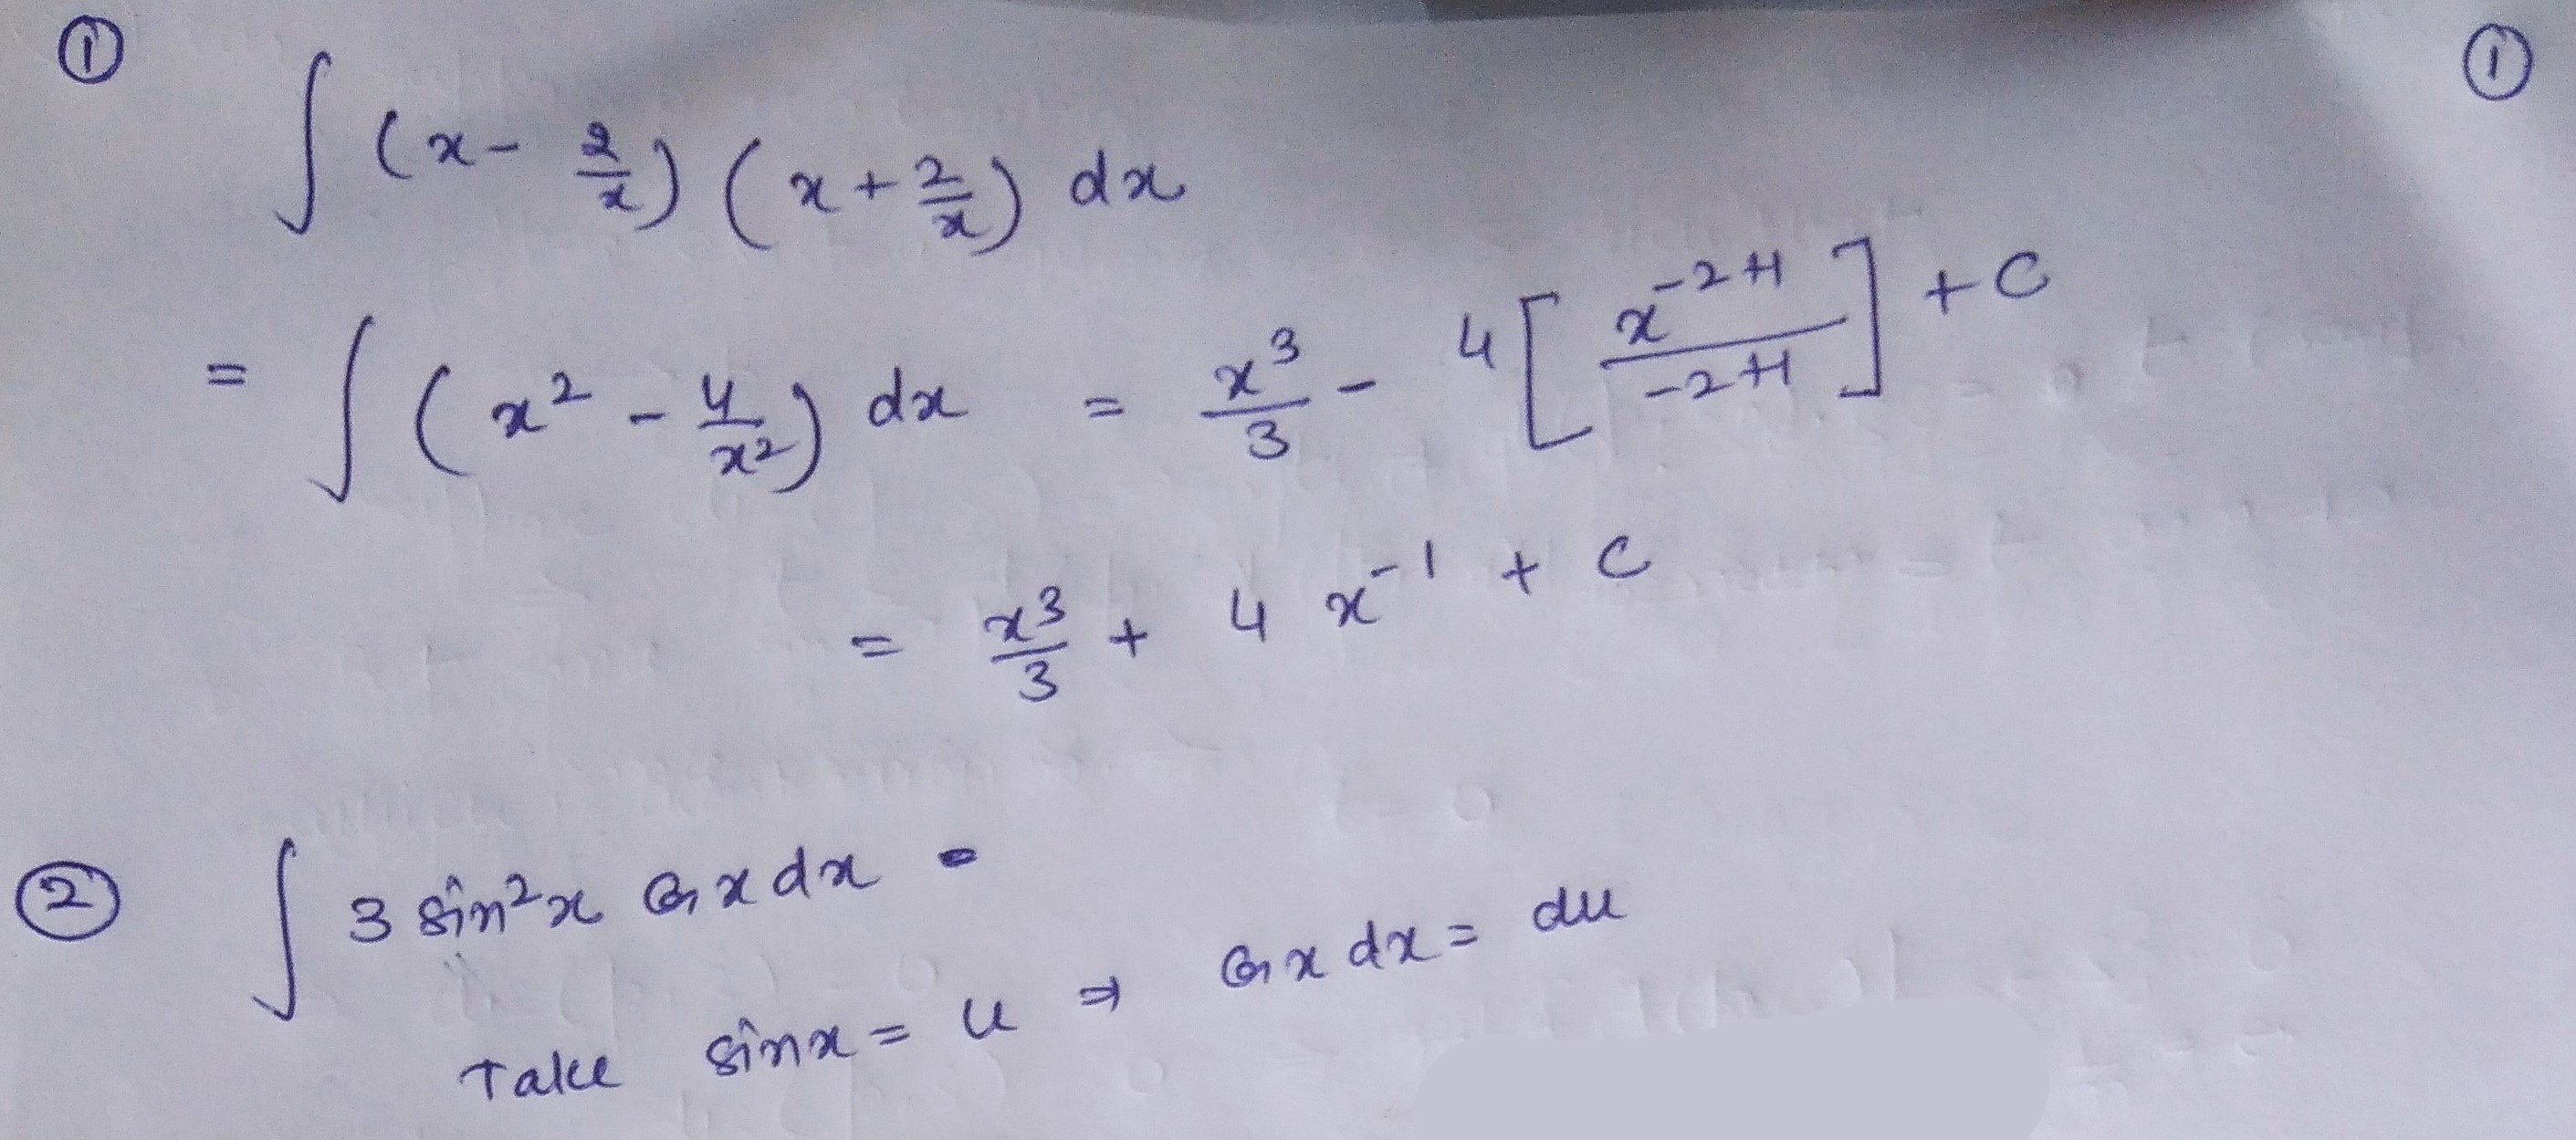 ① ①
∫ (x - 2/x) (x + 2/x) dx
= ∫ (x² - 4/x²) dx = x³/3 - 4[x⁻²⁺¹/-2+1] + C
= x³/3 + 4 x⁻¹ + C
② ∫ 3 sin²x cos x dx
Take sinx = u ⇒ cos x dx = du